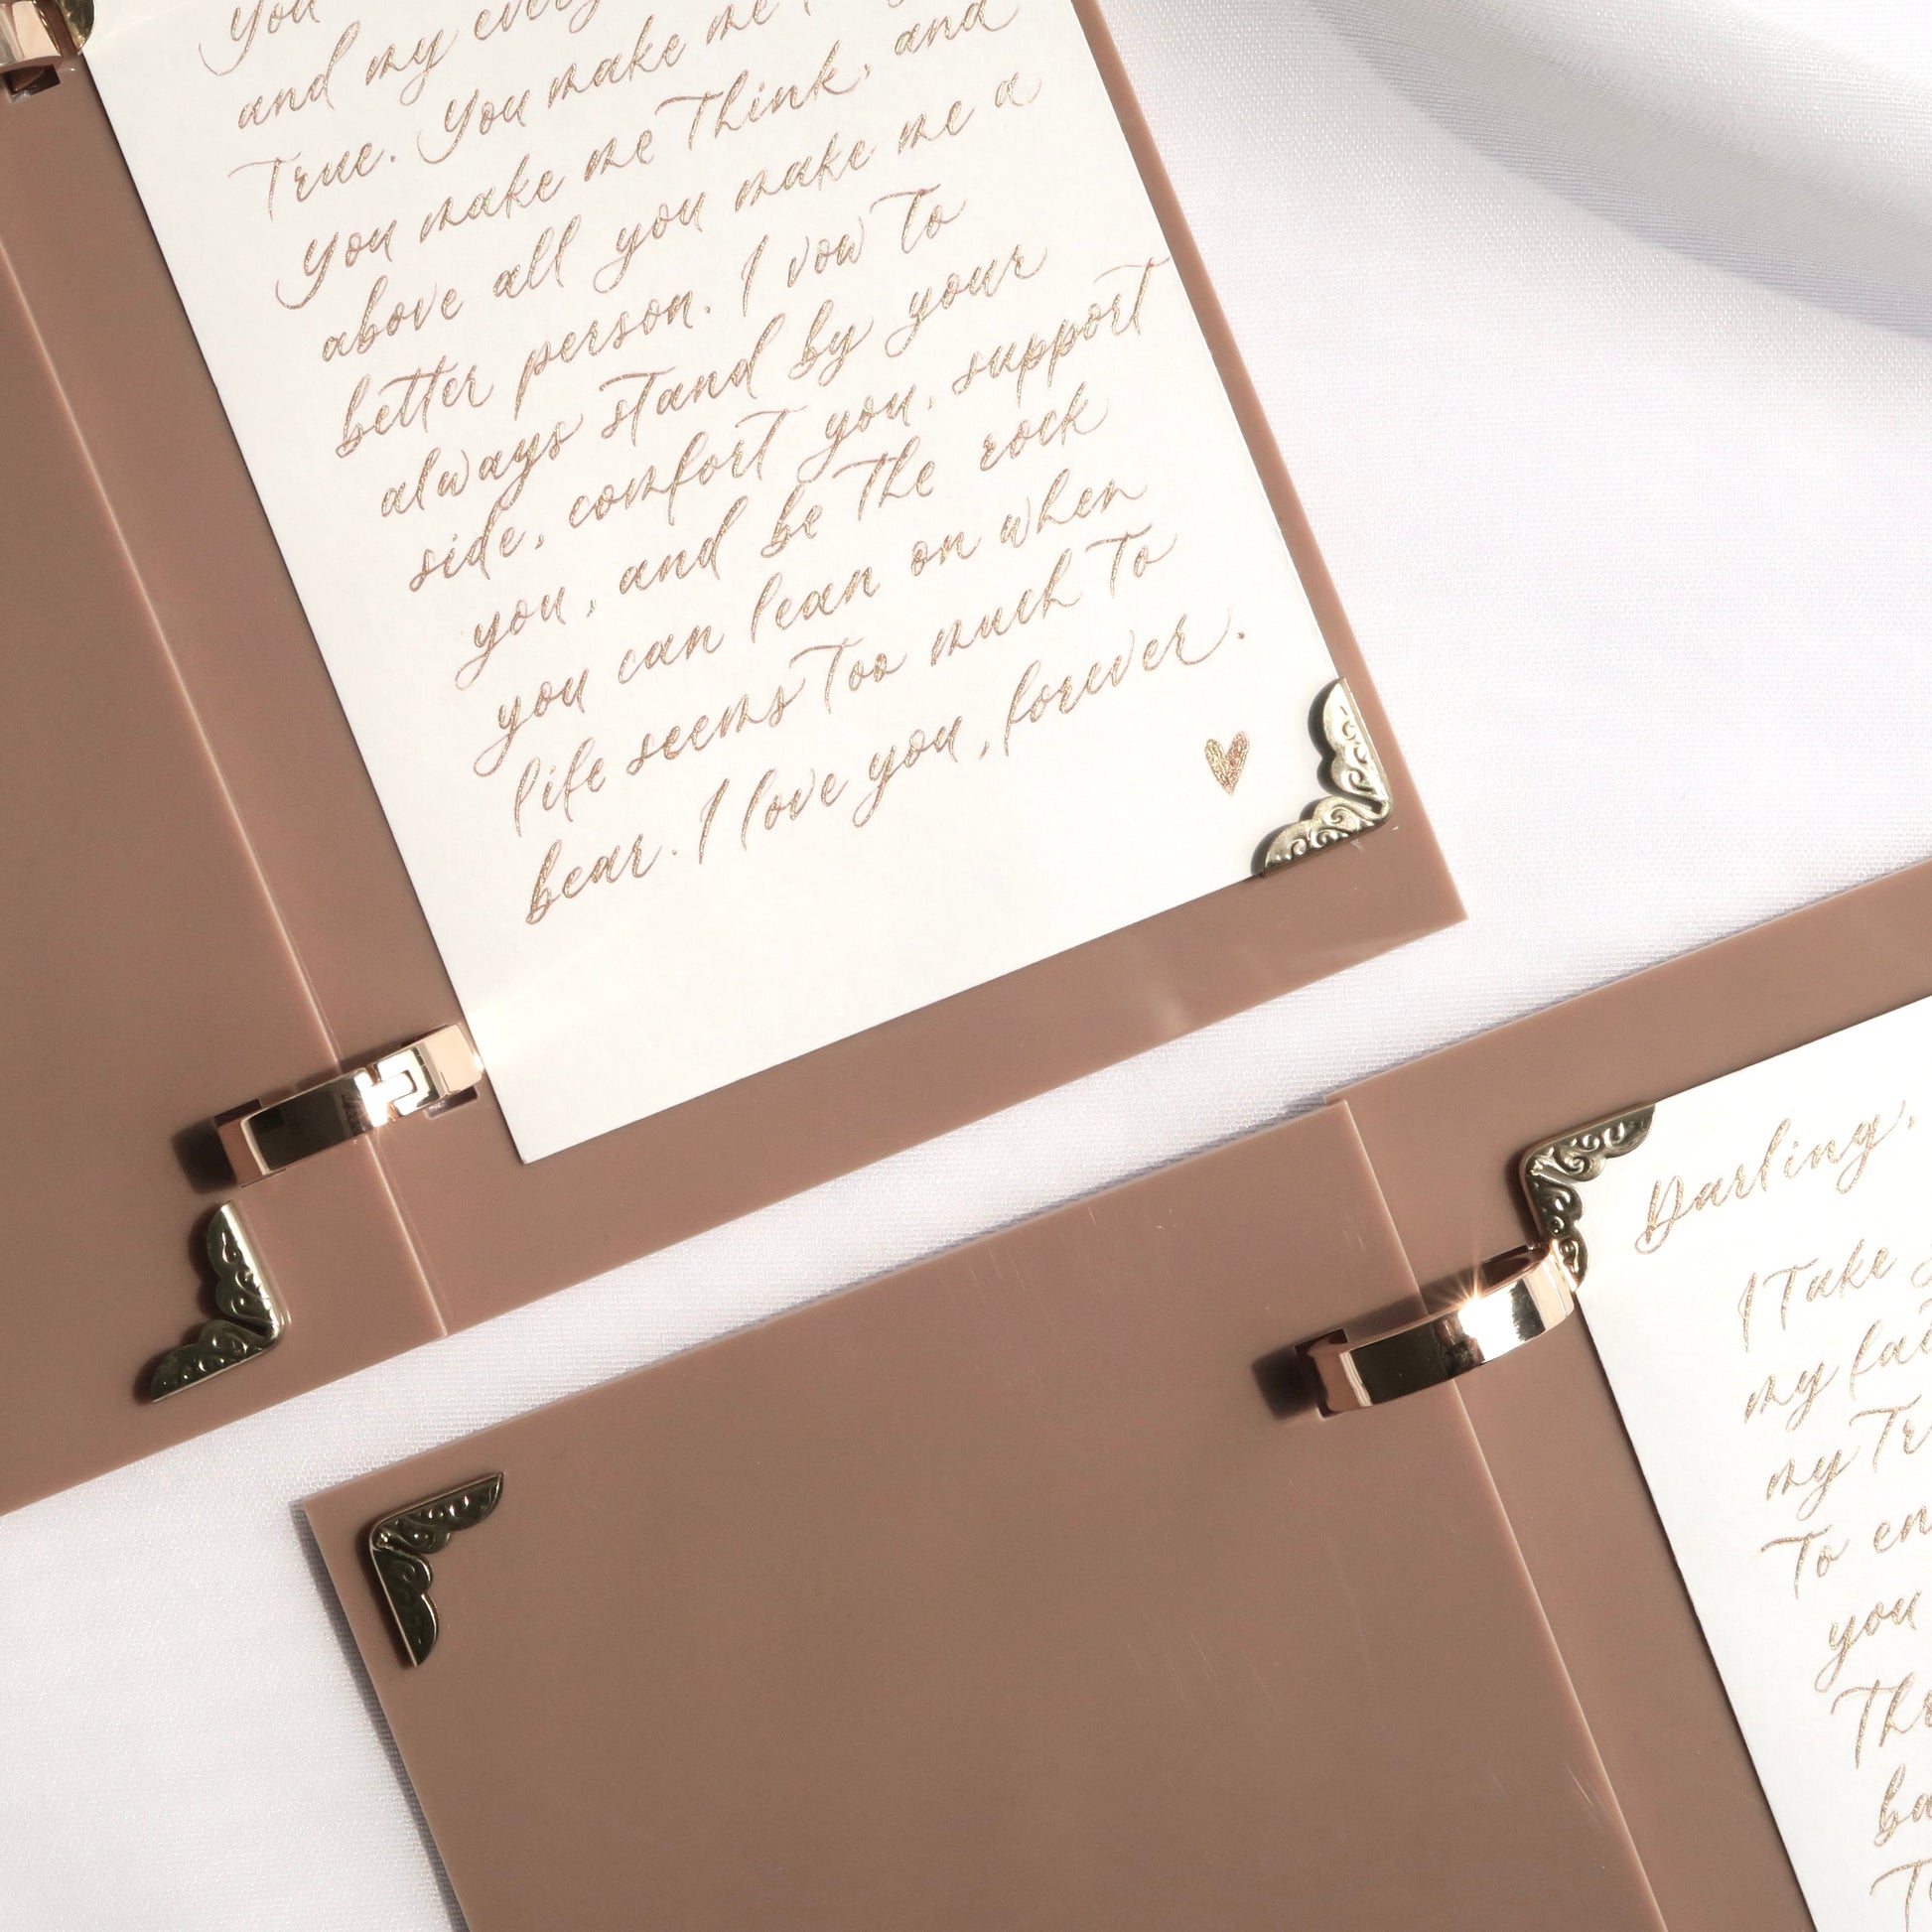 You
and my every
True. You make me
you make me Think, and
above all you make me a
better person. I vow To
always stand by your
side, comfort you, support
you, and be The rock
you can lean on when
life seems Too much To
bear. I love you, forever.
Darling,
I Take
my
my
To
you